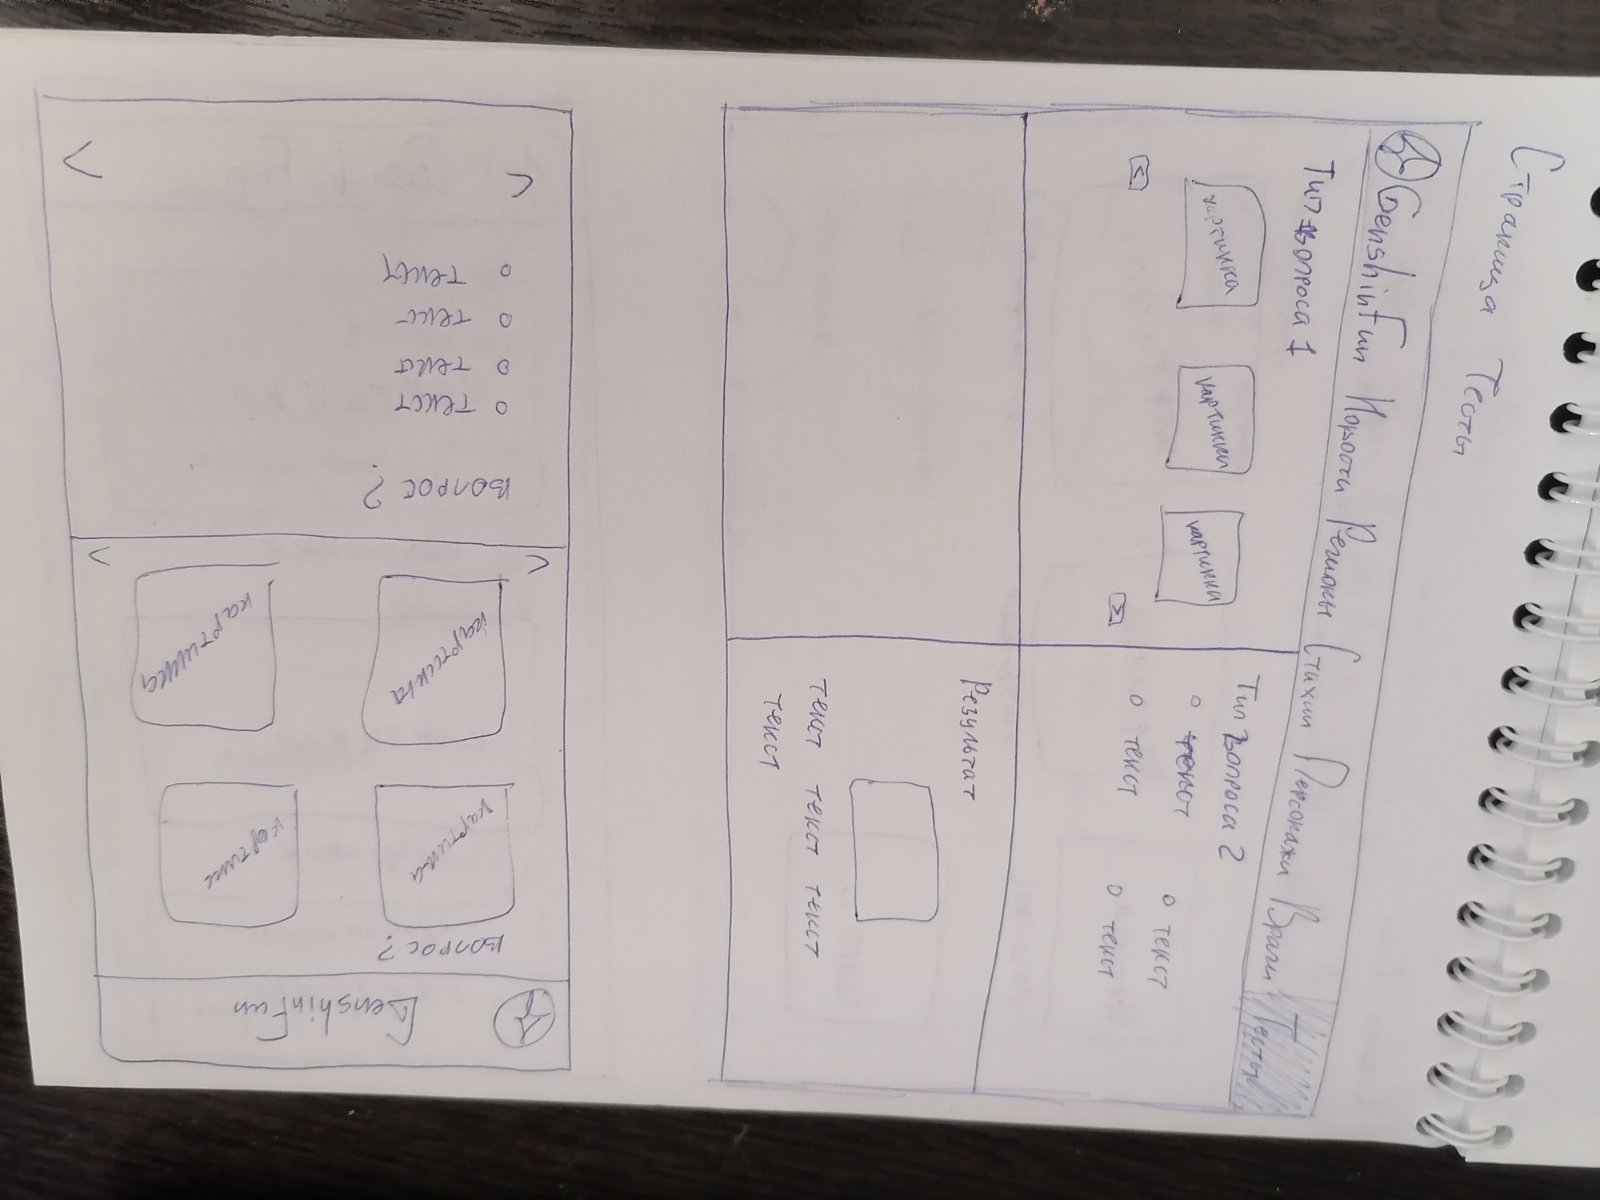 Страница Тесты
GenshinFun Новости Регионы Стихии Персонажи Враги Тесты
Тип вопроса 1
картинка картинка картинка
< >
Тип вопроса 2
текст текст
текст текст
Результат
текст текст текст
текст
GenshinFun
вопрос?
картинка картинка
картинка картинка
< >
вопрос?
текст
текст
текст
текст
< >